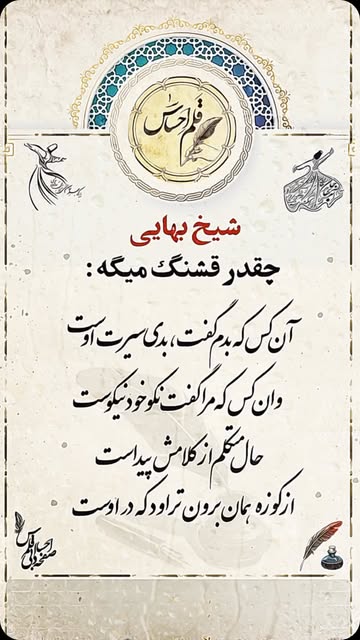 قلم احساس
شیخ بهایی
چقدر قشنگ میگه :
آن کس که بدم گفت، بدی سیرت اوست
وان کس که مرا گفت نکو خود نیکوست
حال متکلم از کلامش پیداست
از کوزه همان برون تراود که در اوست